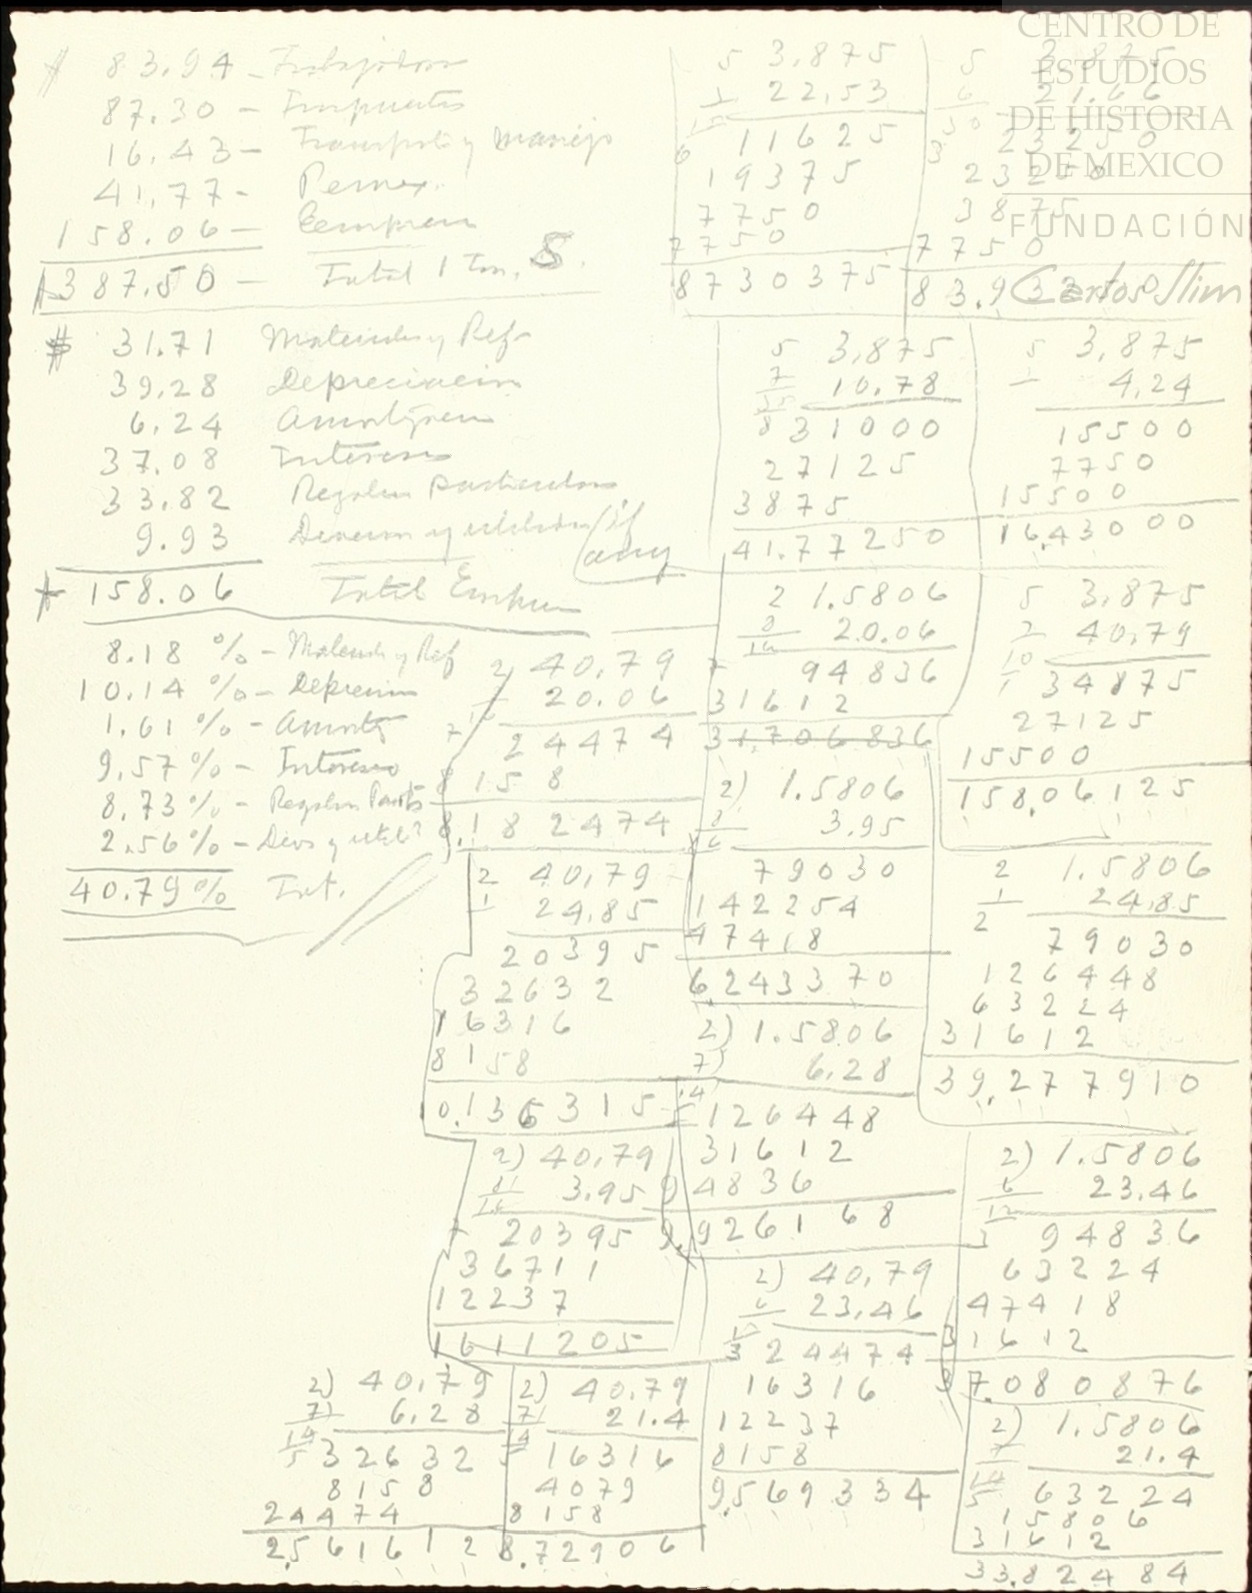 $ 83.94 - Trabajadores
87.30 - Impuestos
16.43 - Transporte y manejo
41.77 - Pemex.
158.06 - Empresa
$ 387.50 - Total 1 Ton. S.
$ 31.71 Materiales y Ref
39.28 Depreciación
6.24 Amortización
37.08 Intereses
33.82 Regalías particulares
9.93 y utilidades (if any
158.06 Total Empresa
8.18 % - Materiales y Ref
10.14 % - Depreción
1.61 % - Amortz
9.57 % - Intereses
8.73 % - Regalías Parts
2.56 % - Divs y utild?
40.79 % Tot.
5 3.875
1 22.53
11625
6
19375
7750
7750
8730375
5 3.875
6 21.66
30 23250
3
23250
3875
7750
83.93250
5 3,875
7 10.78
35
8 31000
27125
3875
41.77250
5 3,875
4,24
15500
7750
15500
16,43000
2 1.5806
8 20.06
16
7 94836
31612
31,706836
5 3.875
2 40,79
10
1 34875
27125
15500
158.06125
2) 40,79
20.06
16
7 24474
8158
8.182474
2) 1.5806
8 3.95
16
79030
142254
47418
6243370
2 40,79
1 24,85
20395
32632
16316
8158
10.136315
2 1.5806
1 24,85
2
79030
126448
63224
31612
39,277910
2) 1.5806
7) 6.28
14
5 126448
31612
94836
9.926168
2) 40,79
8 3,95
16
7 20395
36711
12237
1611205
2) 1.5806
6 23.46
12
3 94836
63224
47418
31612
37.080876
2) 40,79
6 23,46
12
3 24474
16316
12237
8158
9,569334
2) 40,79
7) 6,28
14
5 32632
8158
24474
2,561612
2) 40,79
7) 21.4
14
5 16316
4079
8158
8.72906
2) 1.5806
7 21.4
14
5 63224
15806
31612
33.82484
CENTRO DE
ESTUDIOS
DE HISTORIA
DE MEXICO
FUNDACIÓN
Carlos Slim